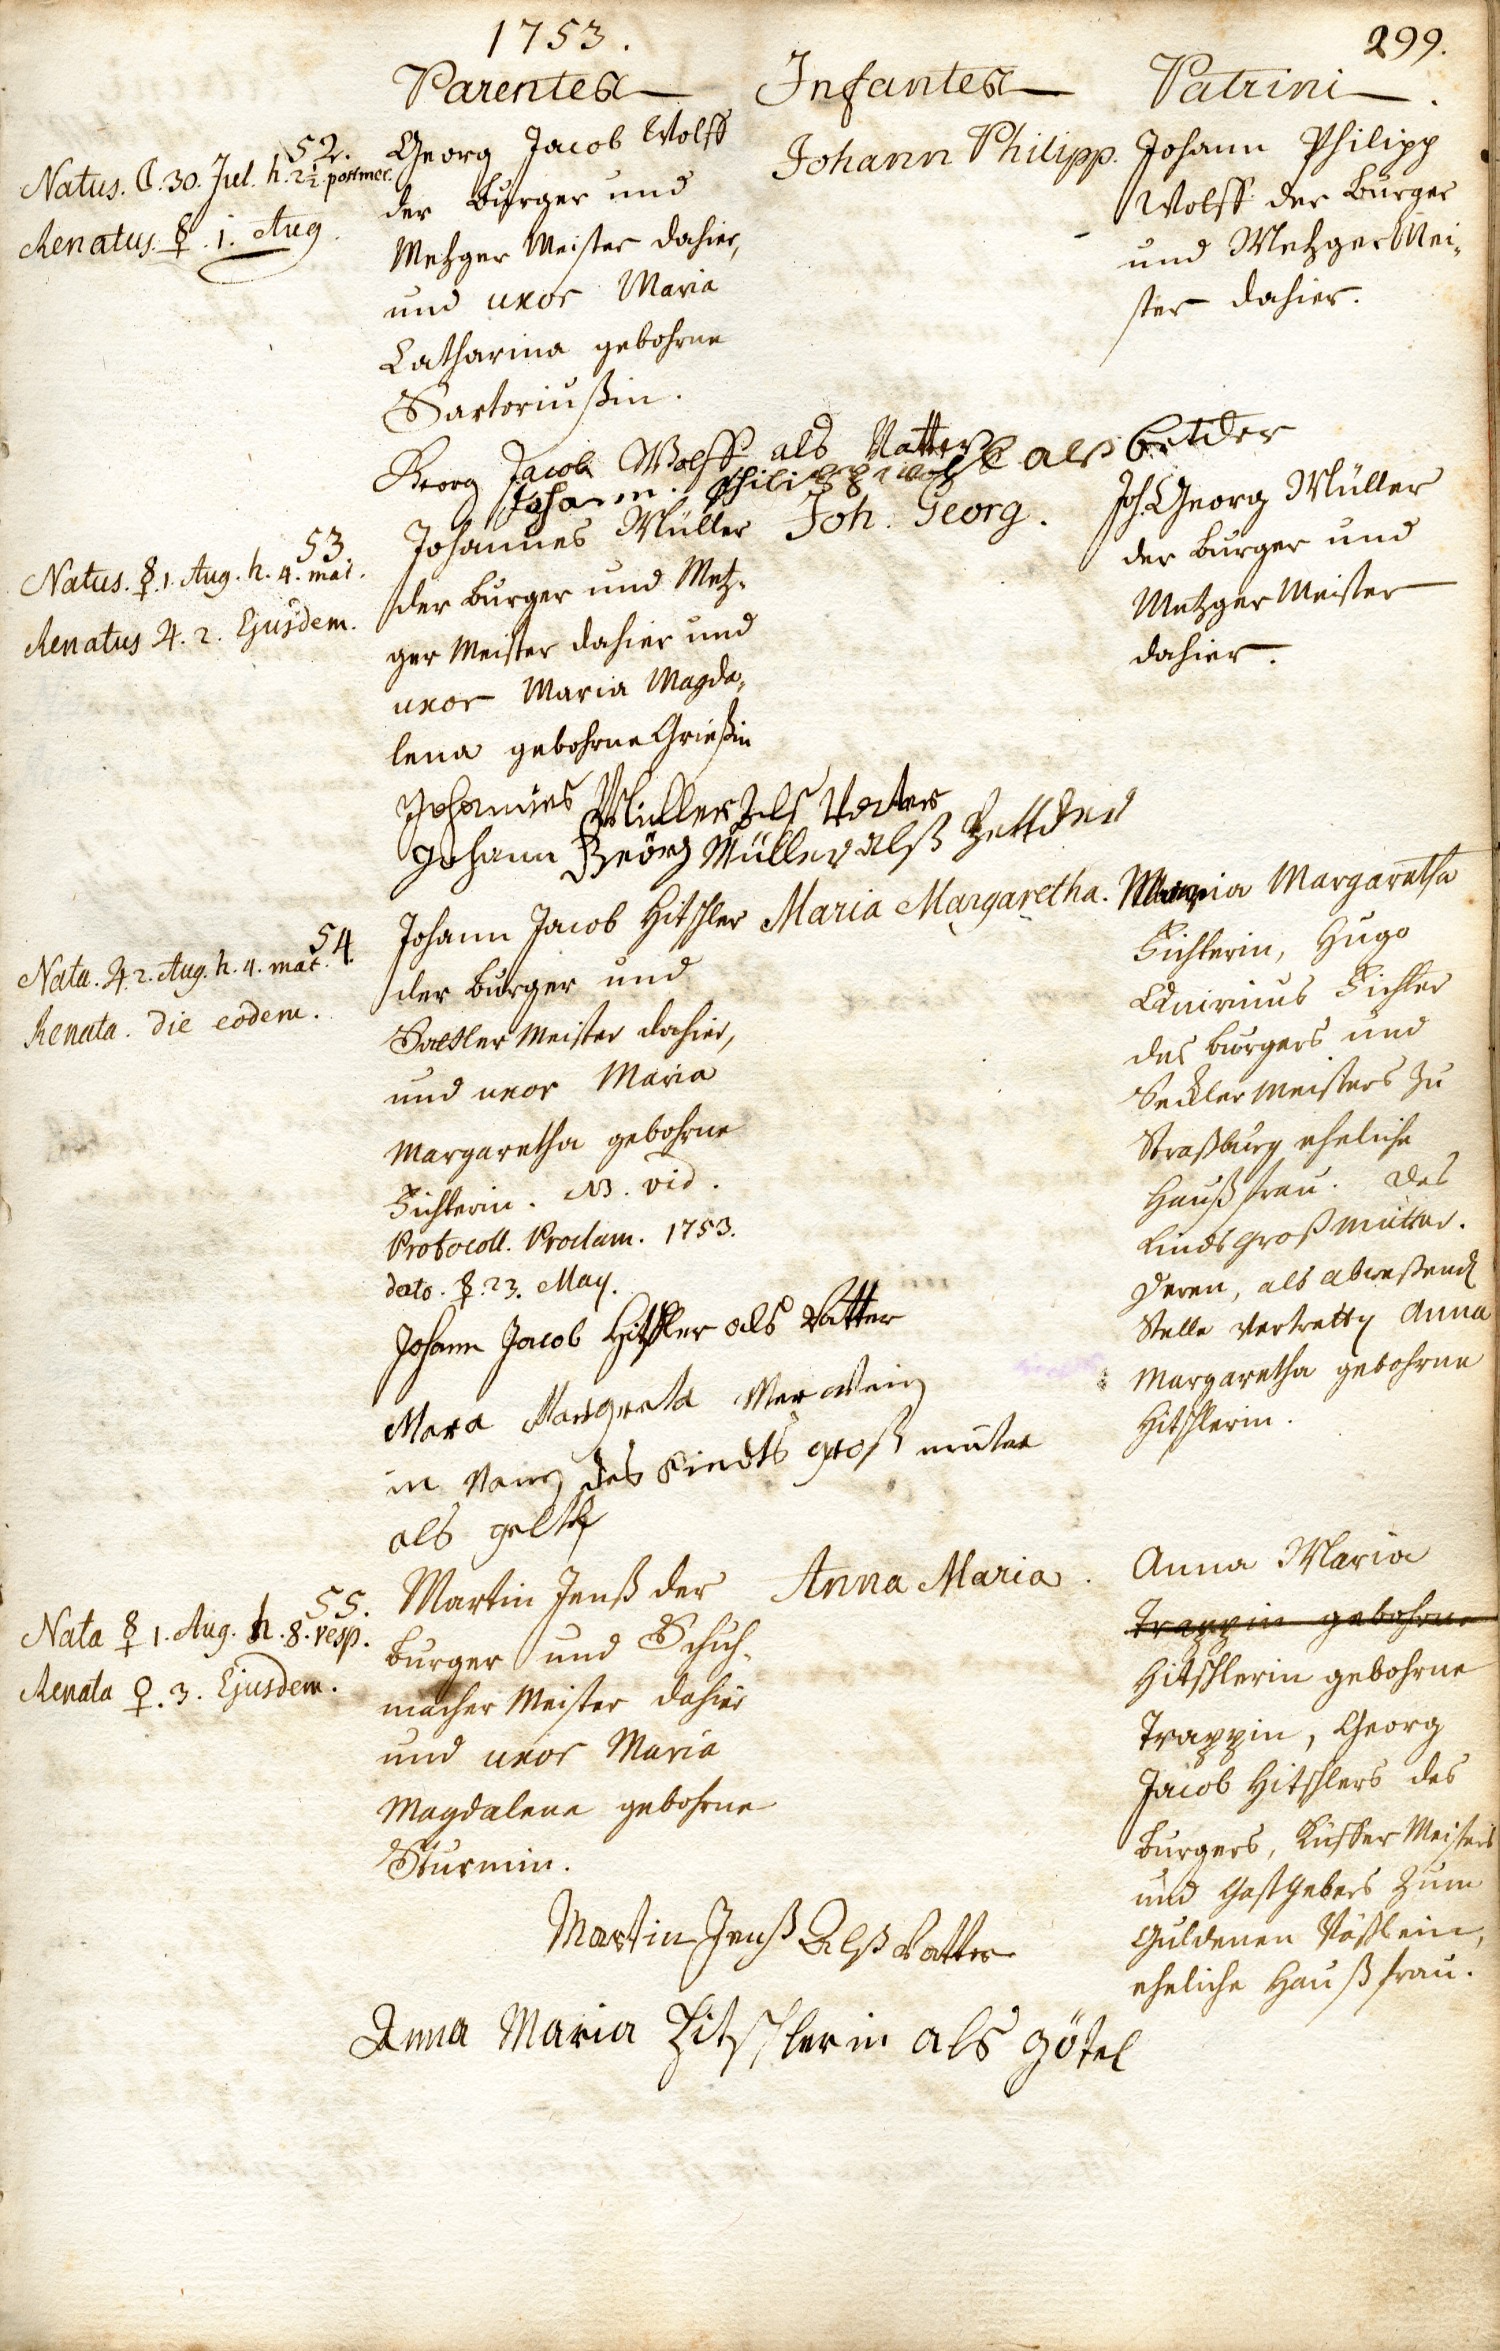 1753.
299.
Parentes
Infantes
Patrini.
52.
Natus. ☾. 30. Jul. h. 2½. post mer.
Renatus. ☿. 1. Aug.
Georg Jacob Wolff
der Burger und
Metzger Meister dahier,
und uxor Maria
Catharina gebohrne
Sartoriußin.
Johann Philipp.
Johann Philipp
Wolff der Burger
und Metzger Mei-
ster dahier.
Georg Jacob Wolff als Vatter
Johann Philipp als
53.
Natus. ☿. 1. Aug. h. 4. mat.
Renatus ♃. 2. Ejusdem.
Johannes Müller
der Burger und Metz-
ger Meister dahier und
uxor Maria Magda-
lena gebohrne Grießin
Joh. Georg.
Joh. Georg Müller
der Burger und
Metzger Meister
dahier.
Johannes Müller Als Vater
Johann Geörg Müller alß Pettder
54.
Nata. ♃. 2. Aug. h. 4. mat.
Renata. die eodem.
Johann Jacob Hitschler
der Burger und
Sattler Meister dahier,
und uxor Maria
Margaretha gebohrne
Fichterin. NB. vid.
Protocoll. Proclam. 1753.
dato. ☿. 23. May.
Maria Margaretha.
Maria Margaretha
Fichterin, Hugo
Quirinus Fichter
des Burgers und
Seckler Meisters zu
Straßburg eheliche
Haußfrau. des
Kinds Großmutter.
Deren, als abweßend
Stelle vertretten Anna
Margaretha gebohrne
Hitschlerin.
Johann Jacob Hitschler als Vatter
Mara Margreta
in Namen des Kindts groß muter
als
55.
Nata ☿ 1. Aug. h. 8. vesp.
Renata ♀. 3. Ejusdem.
Martin Jenß der
Burger und Schuh-
macher Meister dahier
und uxor Maria
Magdalena gebohrne
Sturmin.
Anna Maria.
Anna Maria
Trappin gebohrne
Hitschlerin gebohrne
Trappin, Georg
Jacob Hitschlers des
Burgers, Küffer Meisters
und Gastgebers zum
Guldenen Rößlein,
eheliche Haußfrau.
Martin Jenß Alß Vatter
Anna Maria Hitschlerin als götel